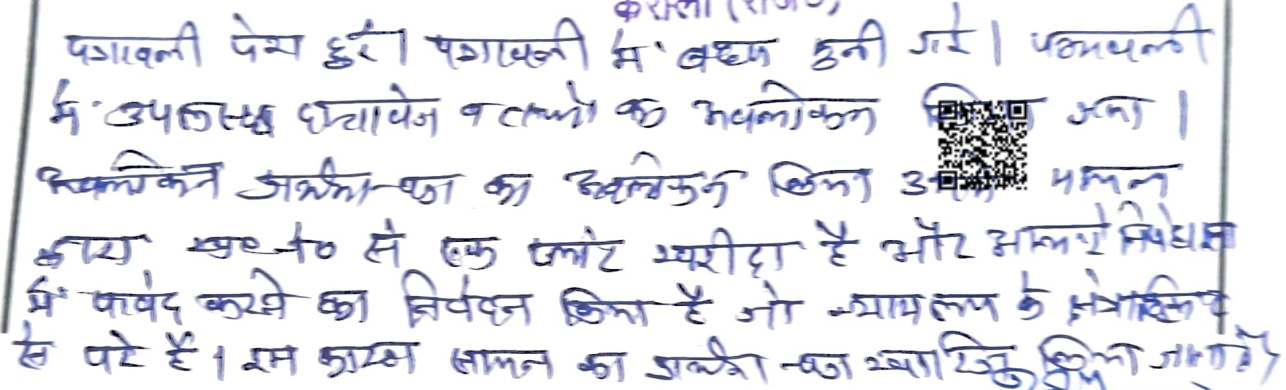 पत्रावली पेश हुई। पत्रावली में बहस सुनी गई। पत्रावली
में उपलब्ध दस्तावेज व तथ्यों का अवलोकन किया गया।
अवलोकन प्रार्थना-पत्र का अवलोकन किया
द्वारा से एक प्लॉट खरीदा है और
में पाबंद करने का निवेदन किया है जो न्यायालय के क्षेत्राधिकार
से परे है। इस कारण का प्रार्थना-पत्र खारिज किया जाता है